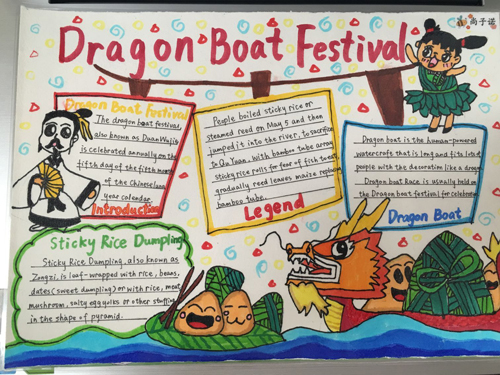 尚子诺
Dragon Boat Festival
Dragon Boat Festival
The dragon boat festival,
also known as DuanWujie
is celebrated annually on the
fifth day of the fifth month
of the Chinese lunar
year calendar.
Introduction
People boiled sticky rice or
steamed reed on May 5 and then
jumped it into the river, to sacrifice
to Qu Yuan, with bamboo tube array
sticky rice rolls for fear of fish to eat,
gradually reed leaves maize replacing
bamboo tube.
Legend
Dragon boat is the human-powered
watercraft that is long and fits lots of
people with the decoration like a dragon
Dragon Boat Race is usually held on
the Dragon boat festival for celebration
Dragon Boat
Sticky Rice Dumpling
Sticky Rice Dumpling, also known as
Zongzi, is leaf-wrapped with rice, beans,
dates (sweet dumpling) or with rice, meat
mushroom, salty egg yolks or other stuffing
in the shape of pyramid.